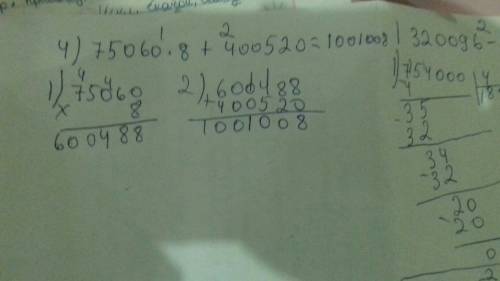 4) 75060 · 8 + 400520 = 1001008
1) 75060
× 8
600488
2) 600488
+ 400520
1001008
320096 -
1) 754000
4
- 35
32
34
- 32
20
- 20
0
2